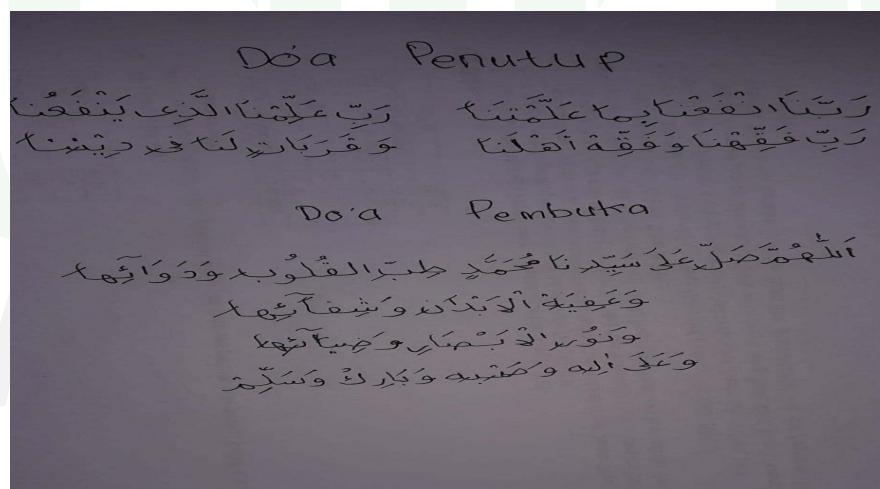 Do'a Penutup
رَبَّنَا انْفَعْنَا بِمَا عَلَّمْتَنَا رَبِّ عَلِّمْنَا الَّذِى يَنْفَعُنَا
رَبِّ فَقِّهْنَا وَفَقِّهْ أَهْلَنَا وَقَرَبَاتٍ لَنَا فِى دِيْنِنَا
Do'a Pembuka
اَللّٰهُمَّ صَلِّ عَلَى سَيِّدِنَا مُحَمَّدٍ طِبِّ القُلُوْبِ وَدَوَائِهَا
وَعَفِيَةِ الْاَبْدَانِ وَشِفَآئِهَا
وَنُوْرِ الْاَبْصَارِ وَضِيَآئِهَا
وَعَلَى اٰلِهِ وَصَحْبِهِ وَبَارِكْ وَسَلِّمْ